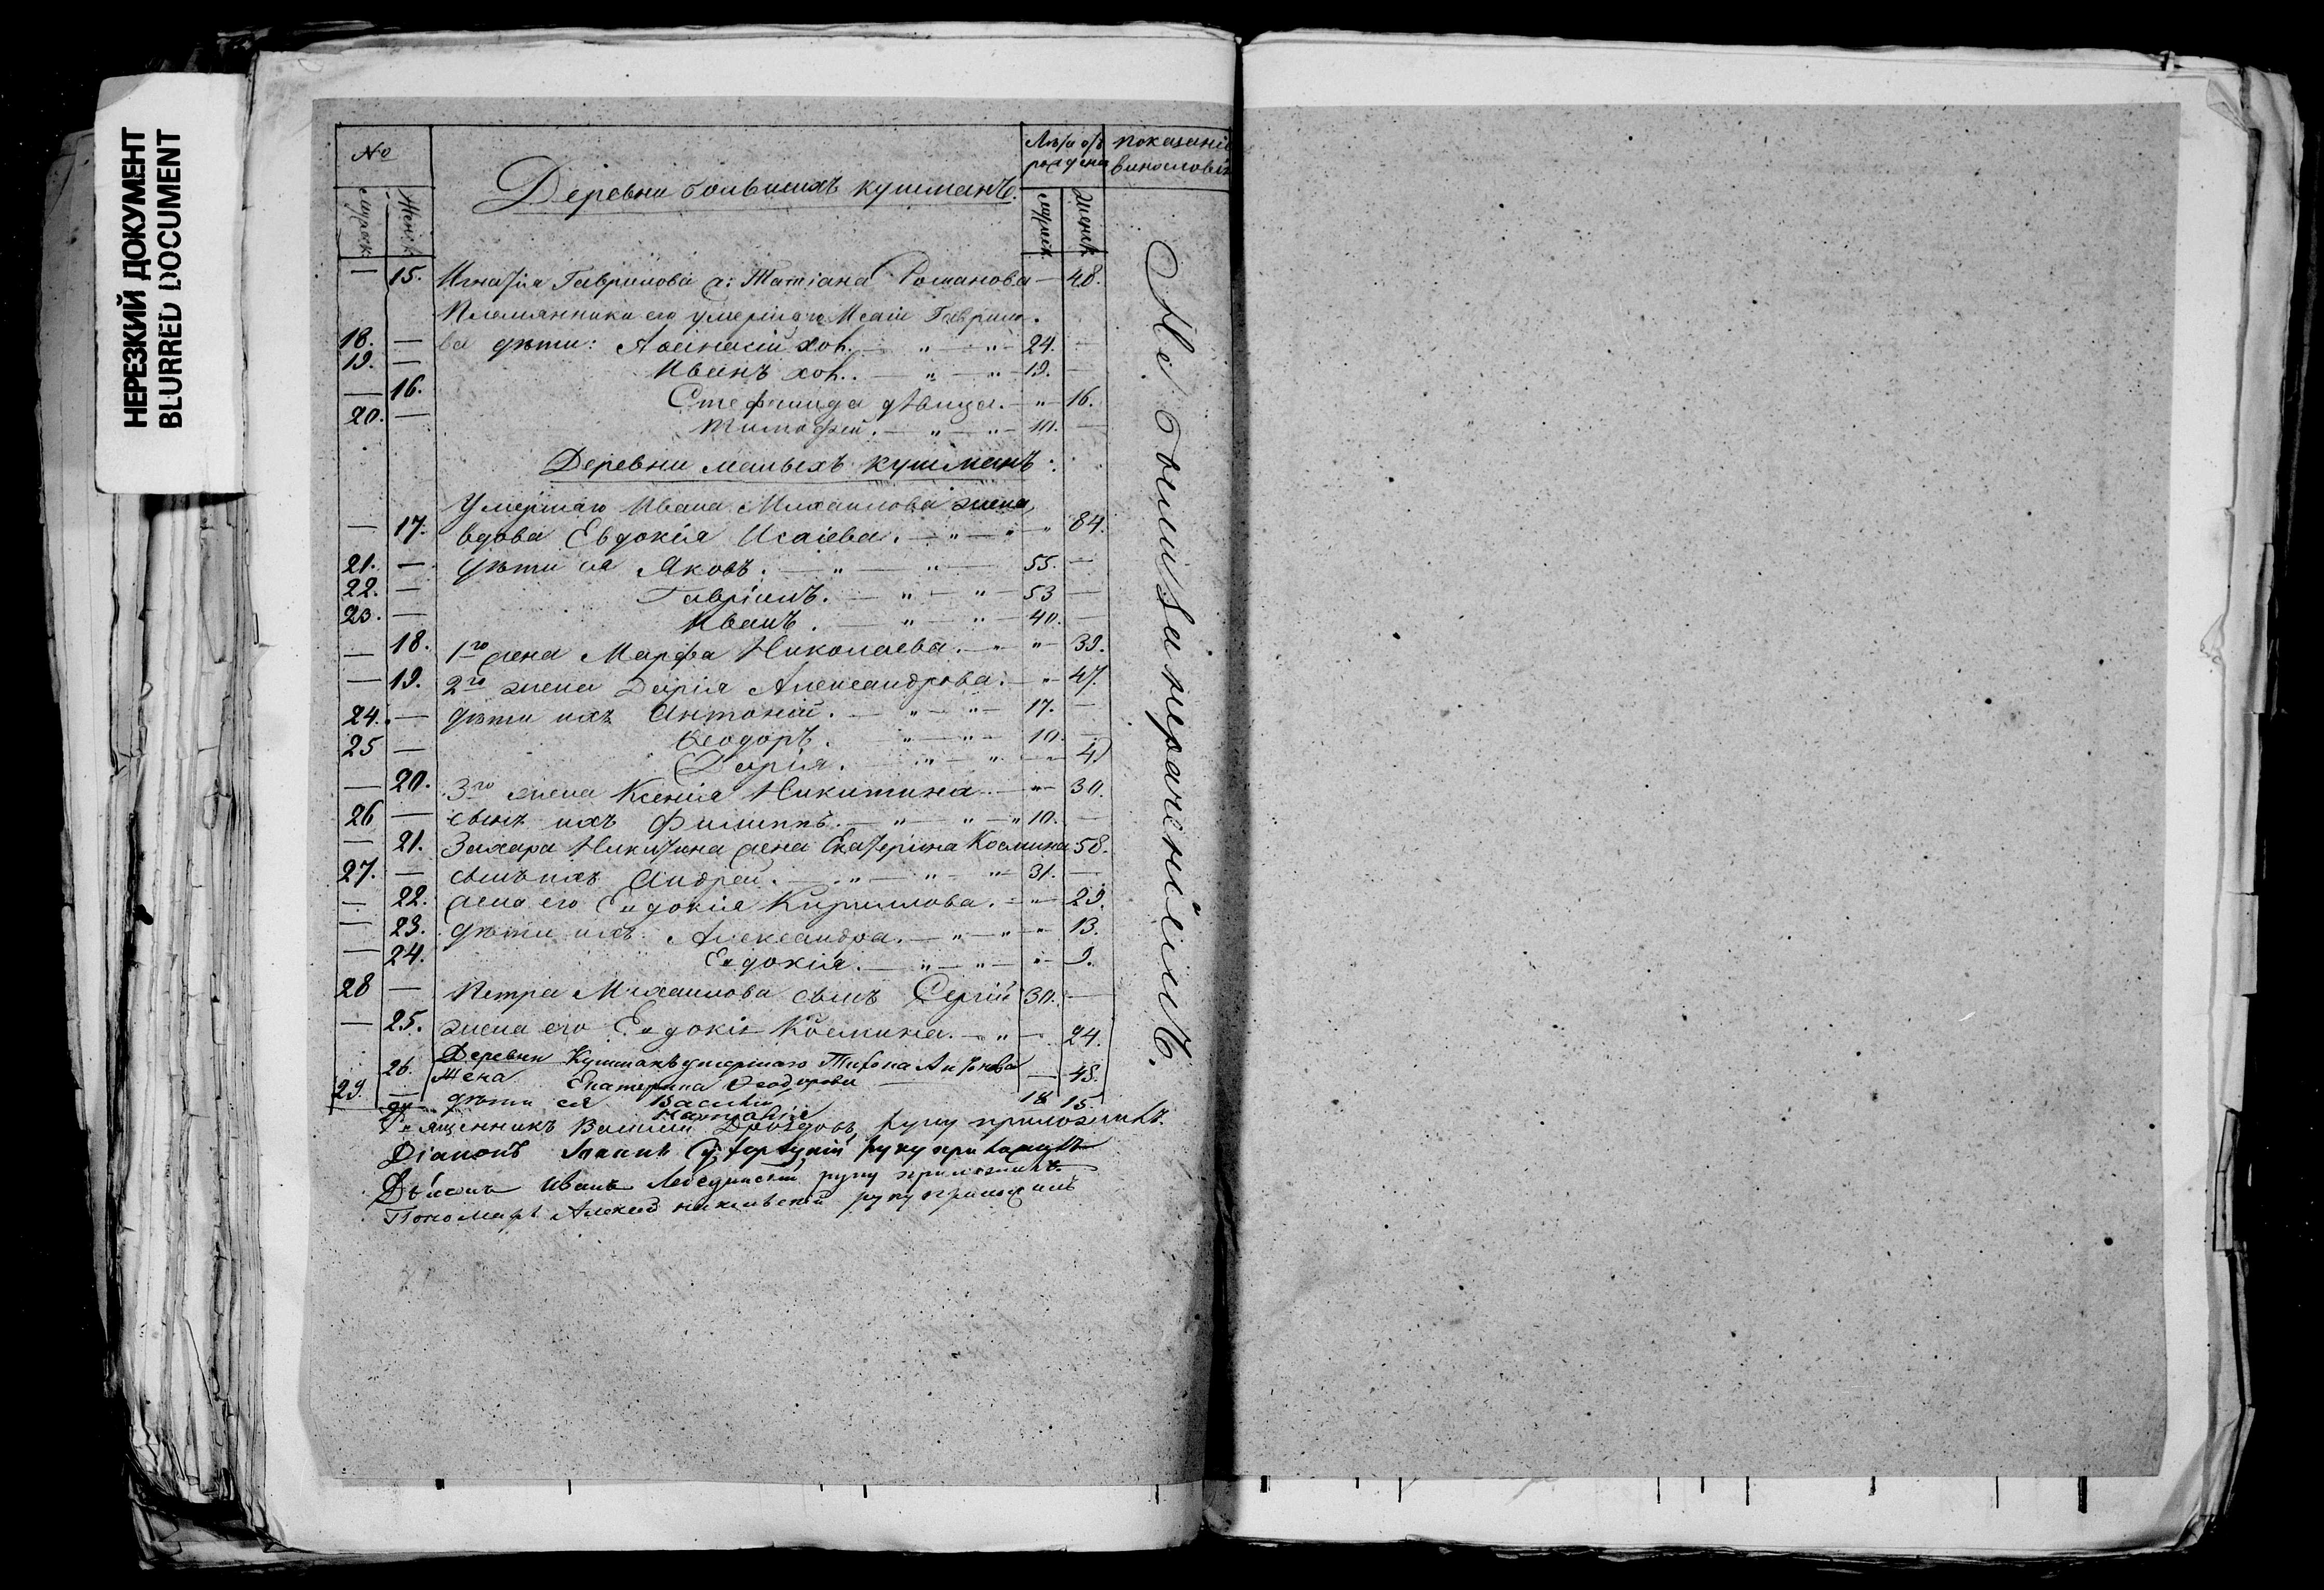 НЕРЕЗКИЙ ДОКУМЕНТ
BLURRED DOCUMENT
№
мужеск.
женск.
Деревни большихъ кушманъ.
Лѣта отъ рожденія
мужеск.
женск.
показаніе винословія
Не большъ за нераченіемъ.
— 15. Игнатія Гаврилова ж: Татіана Романова — 48.
Племянники его умершаго Исаіи Гаврило-
18. — ва дѣти: Аѳанасій хол. — " — " — 24. —
19. — Иванъ хол. — " — " — 19. —
— 16. Стефанида дѣвица. — " — 16.
20. — Тимофей. — " — " — 10. —
Деревни малыхъ кушманъ.
Умершаго Ивана Михаилова жена,
— 17. вдова Евдокія Исаіева. — " — " — " 84.
21. — дѣти ея Яковъ. — " — " — 55. —
22. — Гавріилъ. — " — " — 53 —
23. — Иванъ. — " — " — 40. —
— 18. 1го жена Марфа Николаева. — " — 39.
— 19. 2го жена Дарія Александрова. — " — 47.
24. — дѣти ихъ Антоній. — " — " — 17. —
25 — Ѳеодоръ. — " — " — 10. —
Дарія. — " — " — 4
— 20. 3го жена Ксенія Никитина — " — 30.
26 — сынъ ихъ Филиппъ. — " — " — " 10. —
— 21. Захара Никитина жена Екатерина Космина 58.
27. — сынъ ихъ Андрей. — " — " — " — 31. —
— 22. жена его Евдокія Кириллова. — " — 29.
— 23. дѣти ихъ Александра. — " — " — " — 13.
— 24. Евдокія. — " — " — " — 9.
28 — Петра Михаилова сынъ Сергій 30. —
— 25. жена его Евдокія Космина. — " — 24.
Деревни Кушманъ умершаго Тихона Антонова
26. Жена Екатерина Ѳеодорова — 48.
29. — дѣти ея Василій 18
Наталія 15.
Священникъ Василій Дроздовъ руку приложилъ.
Діаконъ Іоаннъ руку приложилъ
Дьячекъ Иванъ Лебединскій руку приложилъ.
Пономарь Алексей руку приложилъ